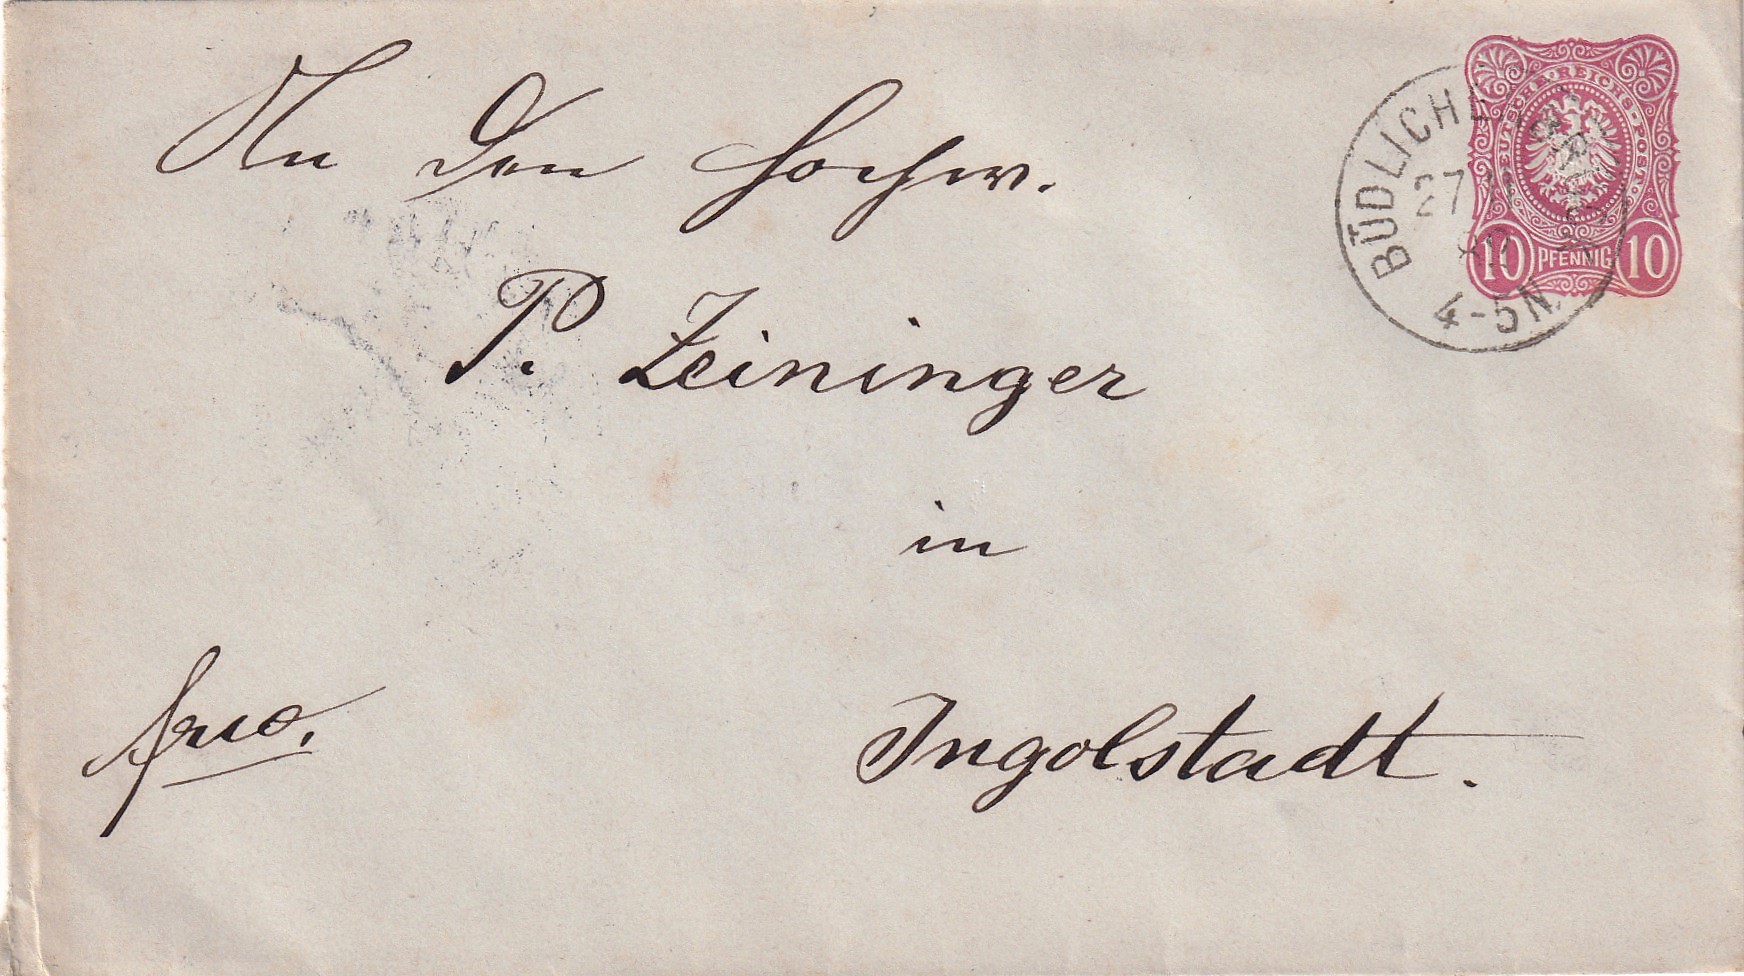 An den Hochw.
P. Zeininger
in
Ingolstadt.
frco.
DEUTSCHE REICHS-POST
10 PFENNIG 10
27 11
4-5N.